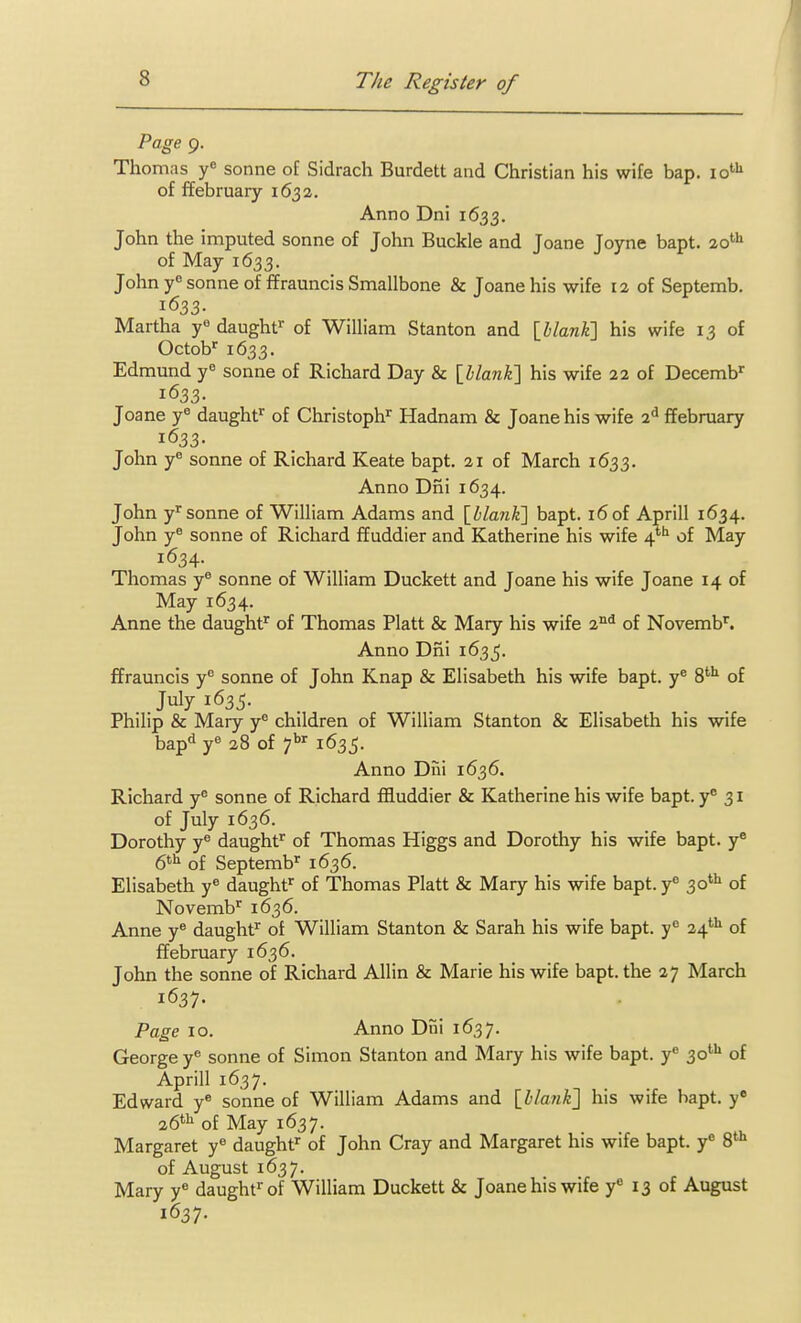 8 The Register of
Page 9.
Thomas yᵉ sonne of Sidrach Burdett and Christian his wife bap. 10ᵗʰ
of ffebruary 1632.
Anno Dni 1633.
John the imputed sonne of John Buckle and Joane Joyne bapt. 20ᵗʰ
of May 1633.
John yᵉ sonne of ffrauncis Smallbone & Joane his wife 12 of Septemb.
1633.
Martha yᵉ daughtʳ of William Stanton and [blank] his wife 13 of
Octobʳ 1633.
Edmund yᵉ sonne of Richard Day & [blank] his wife 22 of Decembʳ
1633.
Joane yᵉ daughtʳ of Christophʳ Hadnam & Joane his wife 2ᵈ ffebruary
1633.
John yᵉ sonne of Richard Keate bapt. 21 of March 1633.
Anno Dñi 1634.
John yʳ sonne of William Adams and [blank] bapt. 16 of Aprill 1634.
John yᵉ sonne of Richard ffuddier and Katherine his wife 4ᵗʰ of May
1634.
Thomas yᵉ sonne of William Duckett and Joane his wife Joane 14 of
May 1634.
Anne the daughtʳ of Thomas Platt & Mary his wife 2ⁿᵈ of Novembʳ.
Anno Dñi 1635.
ffrauncis yᵉ sonne of John Knap & Elisabeth his wife bapt. yᵉ 8ᵗʰ of
July 1635.
Philip & Mary yᵉ children of William Stanton & Elisabeth his wife
bapᵈ yᵉ 28 of 7ᵇʳ 1635.
Anno Dñi 1636.
Richard yᵉ sonne of Richard ffluddier & Katherine his wife bapt. yᵉ 31
of July 1636.
Dorothy yᵉ daughtʳ of Thomas Higgs and Dorothy his wife bapt. yᵉ
6ᵗʰ of Septembʳ 1636.
Elisabeth yᵉ daughtʳ of Thomas Platt & Mary his wife bapt. yᵉ 30ᵗʰ of
Novembʳ 1636.
Anne yᵉ daughtʳ of William Stanton & Sarah his wife bapt. yᵉ 24ᵗʰ of
ffebruary 1636.
John the sonne of Richard Allin & Marie his wife bapt. the 27 March
1637.
Page 10. Anno Dñi 1637.
George yᵉ sonne of Simon Stanton and Mary his wife bapt. yᵉ 30ᵗʰ of
Aprill 1637.
Edward yᵉ sonne of William Adams and [blank] his wife bapt. yᵉ
26ᵗʰ of May 1637.
Margaret yᵉ daughtʳ of John Cray and Margaret his wife bapt. yᵉ 8ᵗʰ
of August 1637.
Mary yᵉ daughtʳ of William Duckett & Joane his wife yᵉ 13 of August
1637.